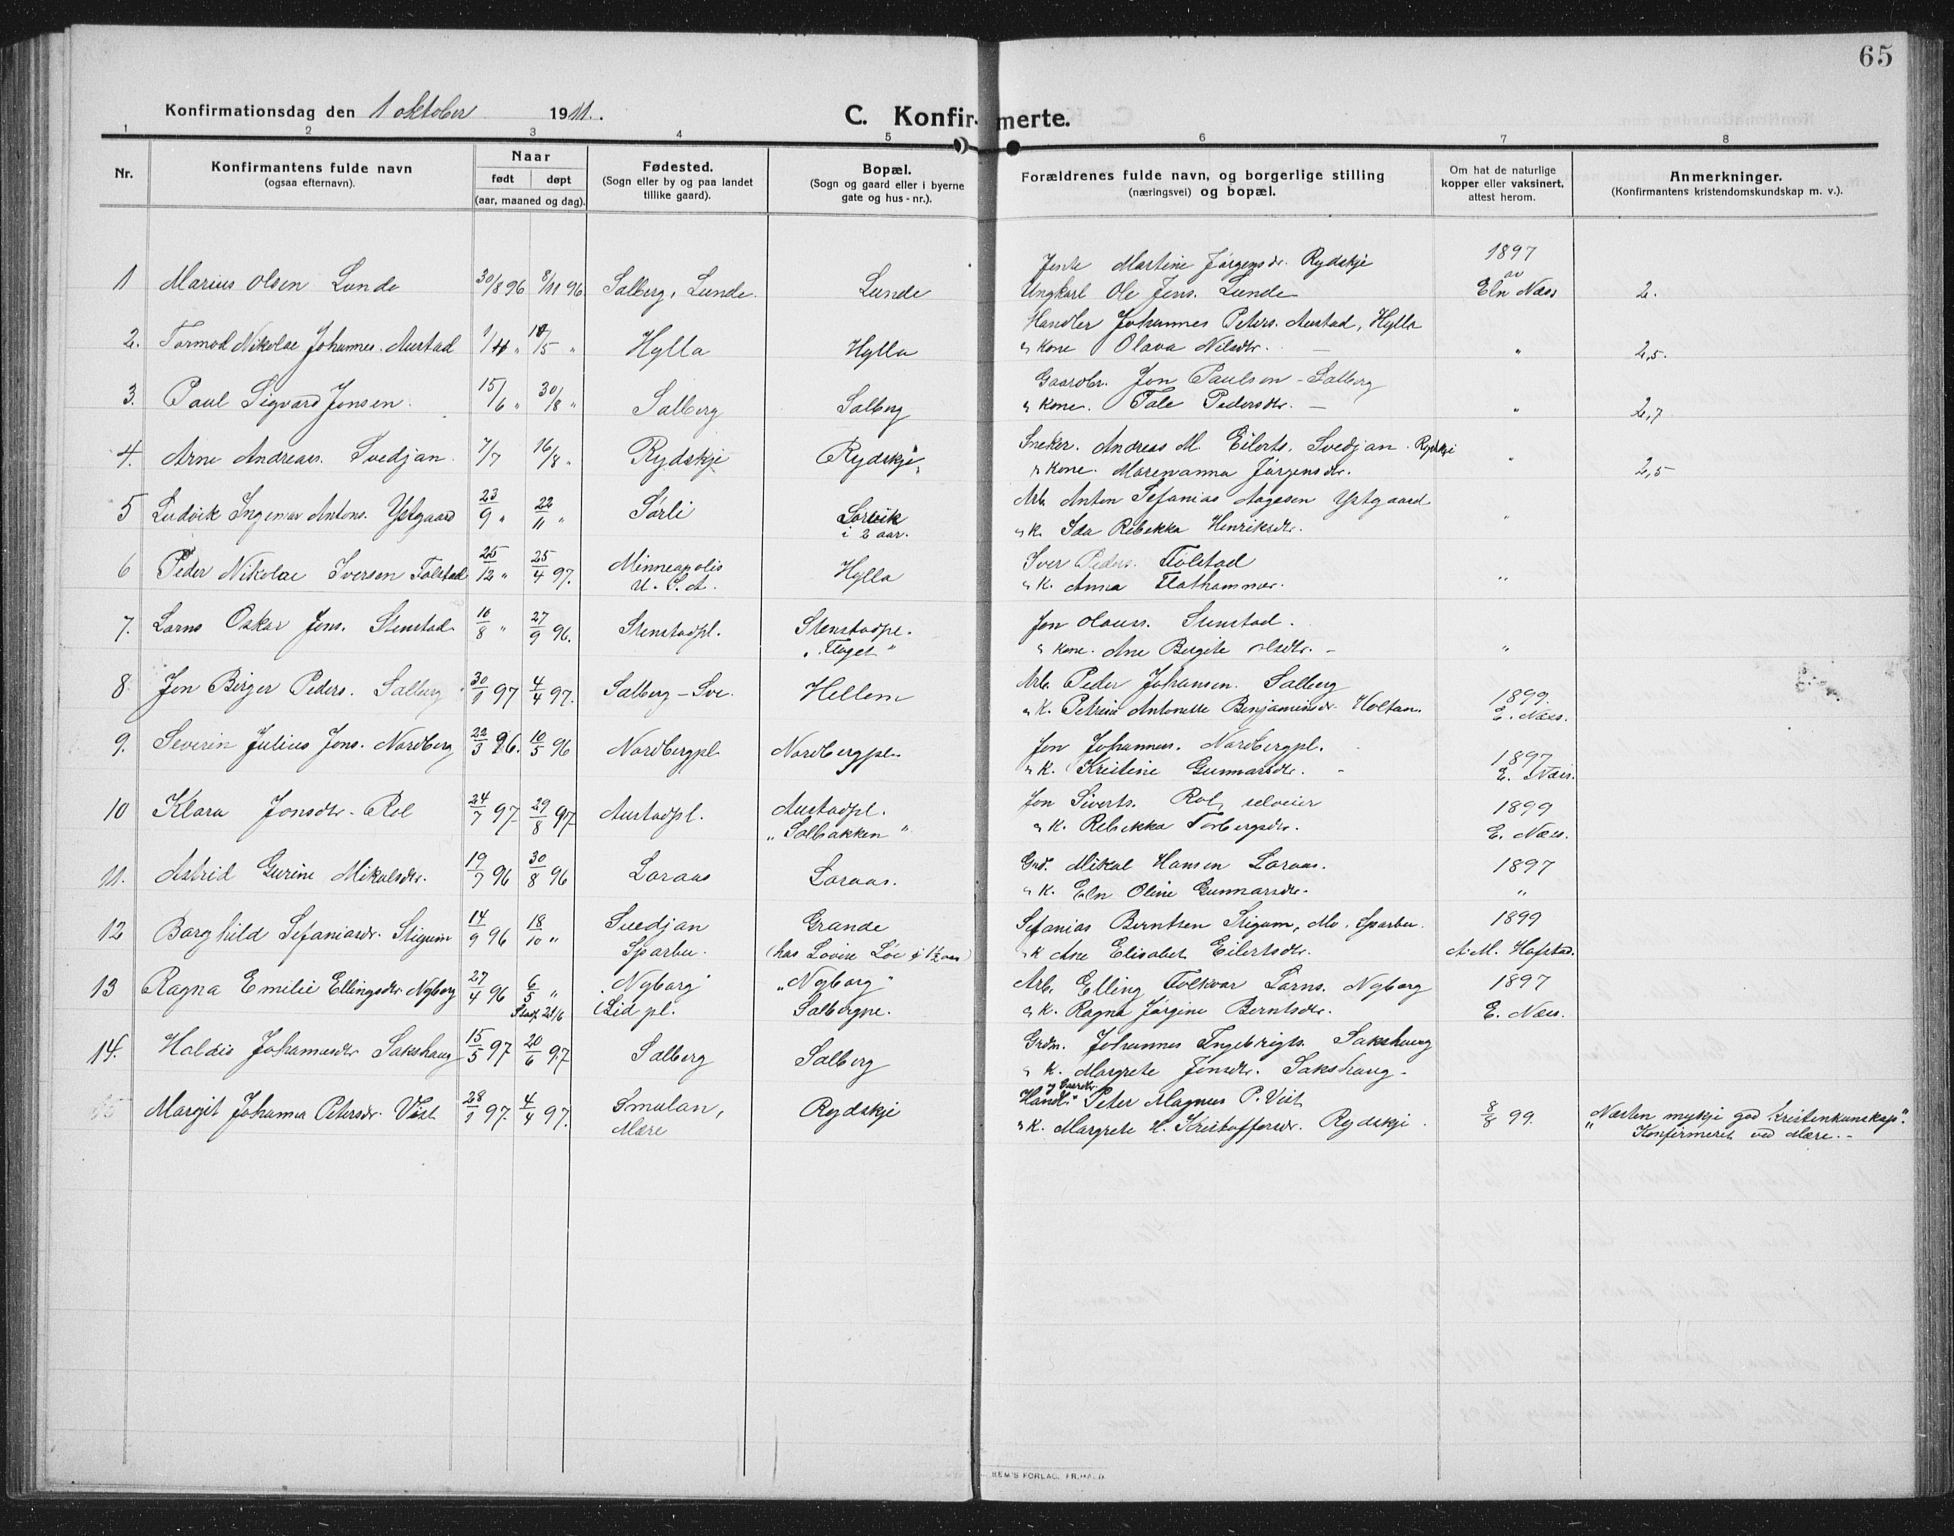 65
Konfirmationsdag den 1 oktober 1911.
C. Konfirmerte.
1 2 3 4 5 6 7 8
Nr.
Konfirmantens fulde navn
(ogsaa efternavn).
Naar
født døpt
(aar, maaned og dag).
Fødested.
(Sogn eller by og paa landet
tillike gaard).
Bopæl.
(Sogn og gaard eller i byerne
gate og hus-nr.).
Forældrenes fulde navn, og borgerlige stilling
(næringsvei) og bopæl.
Om hat de naturlige
kopper eller vaksinert,
attest herom.
Anmerkninger.
(Konfirmantens kristendomskundskap m. v.).
Jente Martine Jørgensdr. Rydskje 1897
1 Marius Olsen Lunde 30/8 96 8/11 96 Salberg, Lunde. Lunde Ungkarl Ole Jens. Lunde av Eln Næss 2.
Handler Johannes Peters. Austad, Hylla
2. Tormod Nikolae Johannes. Austad Hylla Hylla " kone Olava Nilsdtr. — " 2,5.
Gaardbr. Jon Paulsen - Salberg
3. Paul Sigvard Jensen. 15/6 " 30/8 " Salberg Salberg " kone. Tale Pedersdtr. — " 2,7
Sneker. Andreas M. Eilerts. Svedjan. Rydskje
4. Arne Andreas. Svedjan. 7/7 16/8 " Rydskje Rydskje " kone. Marenanna Jørgensdr. " 2,5
Arb. Anton Sefanias Aagesen Ystgaard
5 Ludvik Ingemar Antons. Ystgaard 23/9 " 22/11 " Sørli i 2 aar. " k. Ida Rebekka Henriksdtr. "
6 Peder Nikolae Iversen Følstad 25/12 " 25/4 97. Minneapolis Hylla Iver Peders. Følstad
U. S. A. " k. Anna Flathammer. "
7. Lorns Oskar Jens. Stenstad 16/8 " 27/9 96. Stenstadpl. Stenstadpl. Jon Olauss. Stenstad.
" Flaget " " kone. Ane Bergite Olsdtr. — "
8 Jon Birger Peders. Salberg 30/1 97 4/4 97. Salberg - Sve. Hellem Arb. Peder Johansen. Salberg
" k. Petrine Antonette Benjaminsdr. Holtan. 1899. E. Næss.
9. Severin Julius Jons. Nordberg 22/3 96. 10/5 96 Nordbergpl. Nordbergpl. Jon Johannes. Nordbergpl.
" k. Kristine Gunnarsdtr. - 1897 E. Næss.
10 Klara Jonsdtr. Rol 24/7 97 29/8 97 Austadpl. Austadpl. Jon Siverts. Rol, selveier 1899
" Solbakken " " k. Rebekka Torbergsdtr. E. Næss.
11. Astrid Gurine Mikalsdtr. 19/7 96 30/8 96 Loraas Loraas. Grd. Mikal Hansen Loraas. 1897
" k. Eln Oline Gunnarsdtr. "
12 Borghild Sefaniasdr. Stigum 14/9 96 18/10 " Svedjan Grande Sefanias Berntsen Stigum, Mo. Sparbu. 1899
Sparbu. (hos Lovise Løe i 1½ aar) " k Ane Elisabet Eilertsdtr. A. M. Hofstad.
13 Ragna Emilie Ellingsdtr. Nyborg 27/4 96 6/5 " Nyborg " Nyborg " Arb. Elling Folkvar Lorns. Nyborg 1897
Stadf. 21/6 (Lid pl. Salbergpe. " k. Ragna Jørgine Berntsdtr. E. Næss.
14. Haldis Johannesdtr Sakshaug 15/5 97 20/6 97 Salberg Salberg Grdm. Johannes Ingebrigts. Sakshaug
" k. Margrete Jensdtr. Sakshaug -
15 Margit Johanna Petersdr. Vist 28/1 97. 4/4 97. Smulan, Rydskje Handl. og Gaardbr. Peter Magnus P. Vist
Mære " k. Margrete H. Kristoffersdr. Rydskje. 8/8 99. "Næsten mykje god Kristenkunskap".
Konfirmeret ved Mære. -
BEM'S FORLAG, FR.HALD.